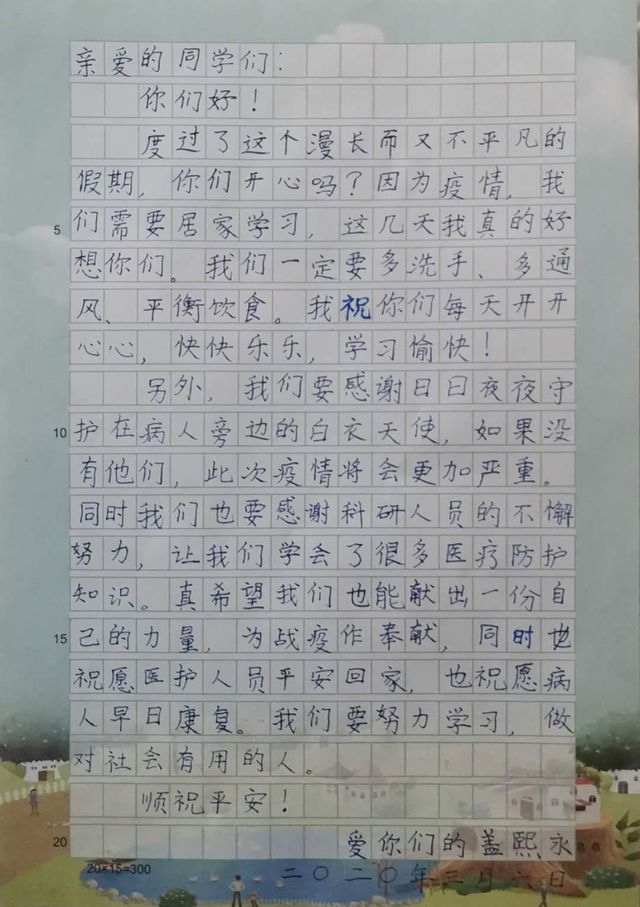 亲爱的同学们：
你们好！
度过了这个漫长而又不平凡的
假期，你们开心吗？因为疫情，我
5 们需要居家学习，这几天我真的好
想你们。我们一定要多洗手、多通
风、平衡饮食。我祝你们每天开开
心心，快快乐乐，学习愉快！
另外，我们要感谢日日夜夜守
10 护在病人旁边的白衣天使，如果没
有他们，此次疫情将会更加严重。
同时我们也要感谢科研人员的不懈
努力，让我们学会了很多医疗防护
知识。真希望我们也能献出一份自
15 己的力量，为战疫作奉献，同时也
祝愿医护人员平安回家，也祝愿病
人早日康复。我们要努力学习，做
对社会有用的人。
顺祝平安！
20 爱你们的盖熙永
20×15=300 二〇二〇年三月六日